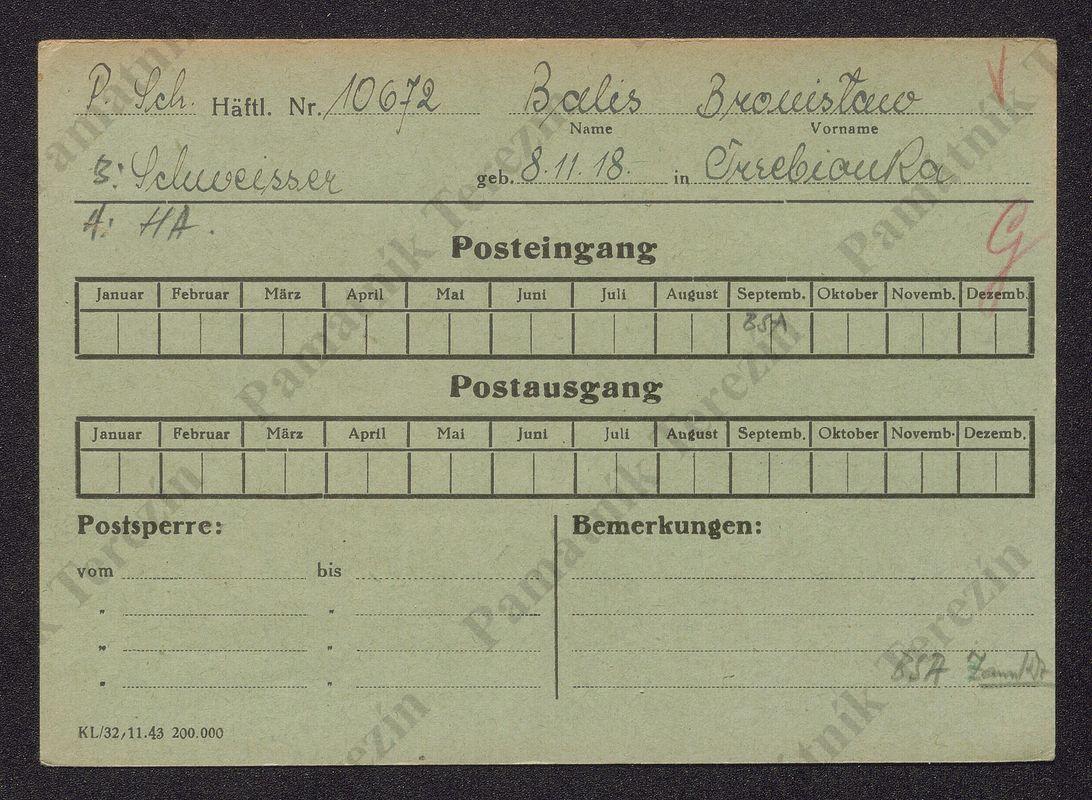 P. Sch. Häftl. Nr. 10672 Balis Bronisław
Name Vorname
B: Schweisser geb. 8.11.18. in Trzebionka
A: HA.
G
Posteingang
Januar Februar März April Mai Juni Juli August Septemb. Oktober Novemb. Dezemb.
BSA
Postausgang
Januar Februar März April Mai Juni Juli August Septemb. Oktober Novemb. Dezemb.
Postsperre: Bemerkungen:
vom bis
" "
" "
" "
BSA
KL/32, 11.43 200.000
Památník Terezín